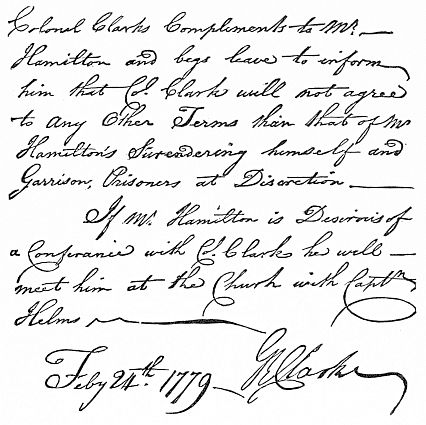 Colonel Clarks Compliments to Mr.
Hamilton and begs leave to inform
him that Col. Clark will not agree
to any Other Terms than that of Mr
Hamilton's Surendering himself and
Garrison, Prisoners at Discretion
If Mr. Hamilton is Desirous of
a Conferance with Col. Clark he will
meet him at the Church with Captn
Helms
Feby 24th. 1779 GR Clark